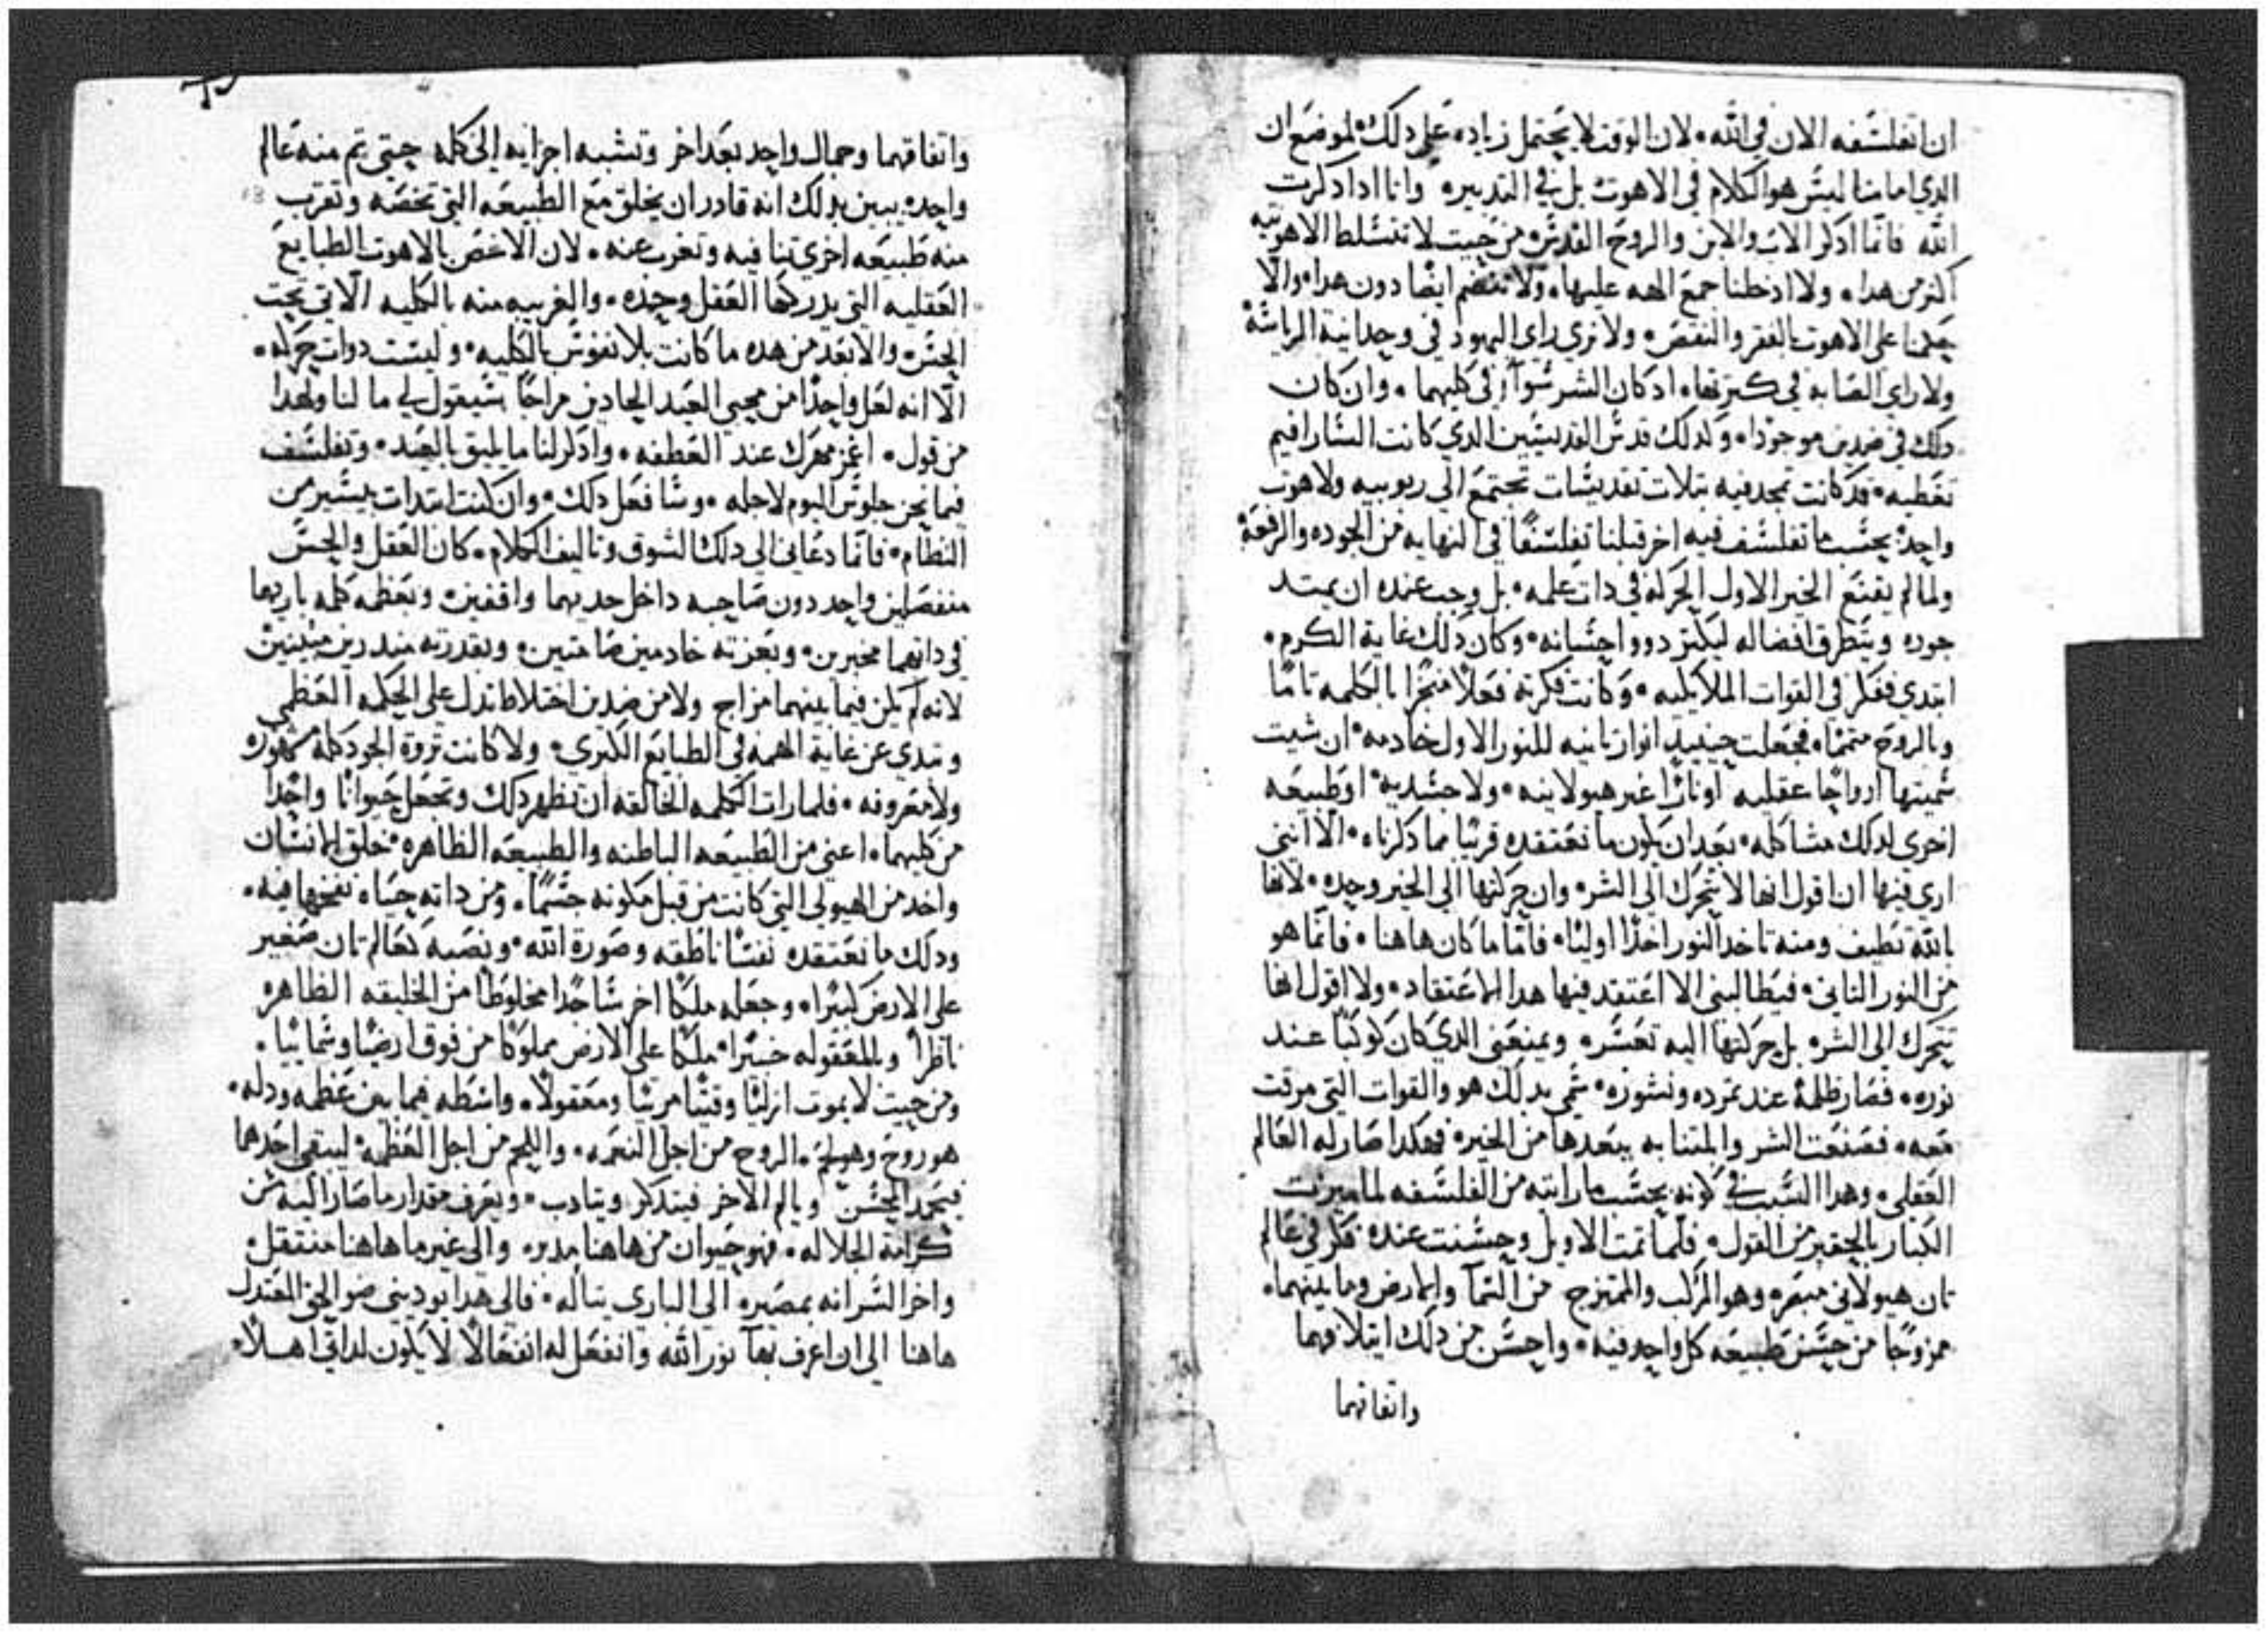 ان اتفلسفه الان في الله. لان الوقت لا يحتمل زياده على دلك لموضع ان
الدي امامنا ليس هو الكلام في الاهوت بل في التدبير وانا ادا دكرت
الله فانما ادكر الاب والابن والروح القدس من حيث لا تنشلط الاهوتيه
اكثر من هدا. ولا ادخلنا جمع الهه عليها. ولا تنضم ايضا دون هدا. والا
حكمنا على الاهوت بالفقر والنقص. ولا نري راي اليهود في وحدانية الرياسة
ولا راي الصابه في كثرتها. اد كان الشر سوآ في كليهما. وان كان
دلك في ضدين موجودا. ولدلك قدس القديسين الدي كانت السارافيم
تغطيه. قد كانت تمجد فيه بتلات تقديسات تجتمع الي ربوبيه ولاهوت
واحد بحسب ما تفلسف فيه اخر قبلنا تفلسفا في النهايه من الجوده والرفعة
ولما لم يقنع الخير الاول الحركه في دات علمه. بل وجب عنده ان يمتد
جوده ويتطرق افضاله ليكثر دوو احسانه. وكان دلك غاية الكرم.
ابتدي ففكر في القوات الملايكيه. وكانت فكرته فعلا منجزا بالكلمه تاما
وبالروح متمما. فجعلت حينيد انوار تانيه للنور الاول خادمه. ان شيت
سميتها ارواحا عقليه او نارا غير هيولانيه. ولا جسديه. او طبيعه
اخري لدلك مشاكله. بعد ان يكون ما نعتقده قريبا مما دكرناه. الا انني
اري فيها ان اقول انها لا تتحرك الي الشر. وان حركتها الي الخير وحده. لانها
بالله تطيف ومنه تاخد النور اخدا اوليا. فاما ما كان هاهنا. فانما هو
من النور التاني. فيطالبني الا اعتقد فيها هدا الاعتقاد. ولا اقول انها
تتحرك الي الشر. بل حركتها اليه تعسر. ويمنعني الدي كان كوكبا عند
نوره. فصار ظلمة عند تمرده ونشوزه. سمي بدلك هو والقوات التي مرقت
معه. فصنعت الشر والمتنا به ببعدها من الخير. فهكدا صار له العالم
العقلي. وهدا السبب في كونه بحسب ما رايته من الفلسفه لما ميزت
الكبار بالحقير من القول. فلما تمت الاويل وحسنت عنده فكر في عالم
تان هيولاني مبصر. وهو المركب والممتزج من السمآ والارض وما بينهما.
ممزوجا من حسن طبيعه كل واحد فيه. واحسن من دلك ايتلافهما
واتفاقهما
واتفاقهما وجمال واحد بعد اخر وتشبه اجزايه الي كله حتي تم منه عالم
واحد. يبين بدلك انه قادر ان يخلق مع الطبيعه التي تخصه وتقرب
منه طبيعه اخري تنافيه وتغرب عنه. لان الاخص بالاهوت الطبايع
العقليه التي يدركها العقل وحده. والغريبه منه بالكليه الاتي تحت
الحس. والابعد من هده ما كانت بلا نفوس بالكليه. وليست دوات حركه.
الا انه لعل واحدا من محبي العيد الحادين مراحا سيقول لي ما لنا ولهدا
من قول. اغمز مهرك عند العطفه. وادكر لنا ما يليق بالعيد. وتفلسف
فيما نحن جلوس اليوم لاجله. وسافعل دلك. وان كنت ابتدات بيسير من
النظام. فانما دعاني الي دلك الشوق وتاليف الكلام. كان العقل والحس
منفصلين واحد دون صاحبه داخل حديهما واقفين. وبعظمه كلمه باريهما
في داتهما مخبرين. وبعزته خادمين صامتين. وبقدرته مندرين مبينين
لانه لم يكن فيما بينهما مزاج ولا من ضدين اختلاط تدل علي الحكمه العظمي
وتبدي عن غاية الهمه في الطبايع الكبري. ولا كانت تروة الجود كله مشهوره
ولا معروفه. فلما رات الكلمه الخالقه ان تظهر دلك وتجعل حيوانا واحدا
من كليهما. اعني من الطبيعه الباطنه والطبيعه الظاهره. خلق الانسان
واخد من الهيولي التي كانت من قبل مكونه جسما. ومن داته حياه نفخها فيه.
ودلك ما نعتقده نفسا ناطقه وصورة الله. ونصبه كعالم تان صغير
علي الارض كبيرا. وجعله ملكا اخر ساجدا مخلوطا من الخليقه الظاهره
ناظرا وللمعقوله خبيرا. ملكا علي الارض مملوكا من فوق ارضيا وسمابيا.
ومن حيث لا يموت ازليا وقتيا مرييا ومعقولا. واسطه فيما بين عظمه ودله.
هو روح وهو لحم. الروح من اجل النعمه. واللحم من اجل العظمه. ليبقي احدهما
فيمجد المحسن ويالم الاخر فيتدكر ويتادب. ويعرف مقدار ما صار اليه من
كرامة الجلاله. فهو حيوان من هاهنا مدبر. والي غير ما هاهنا منتقل.
واخر السر انه بمصيره الي الباري يتاله. فالي هدا يوديني ضو الحق المعتدل
هاهنا الي ان اعرف بها نور الله وانفعل له انفعالا لا يكون لداتي اهلا.